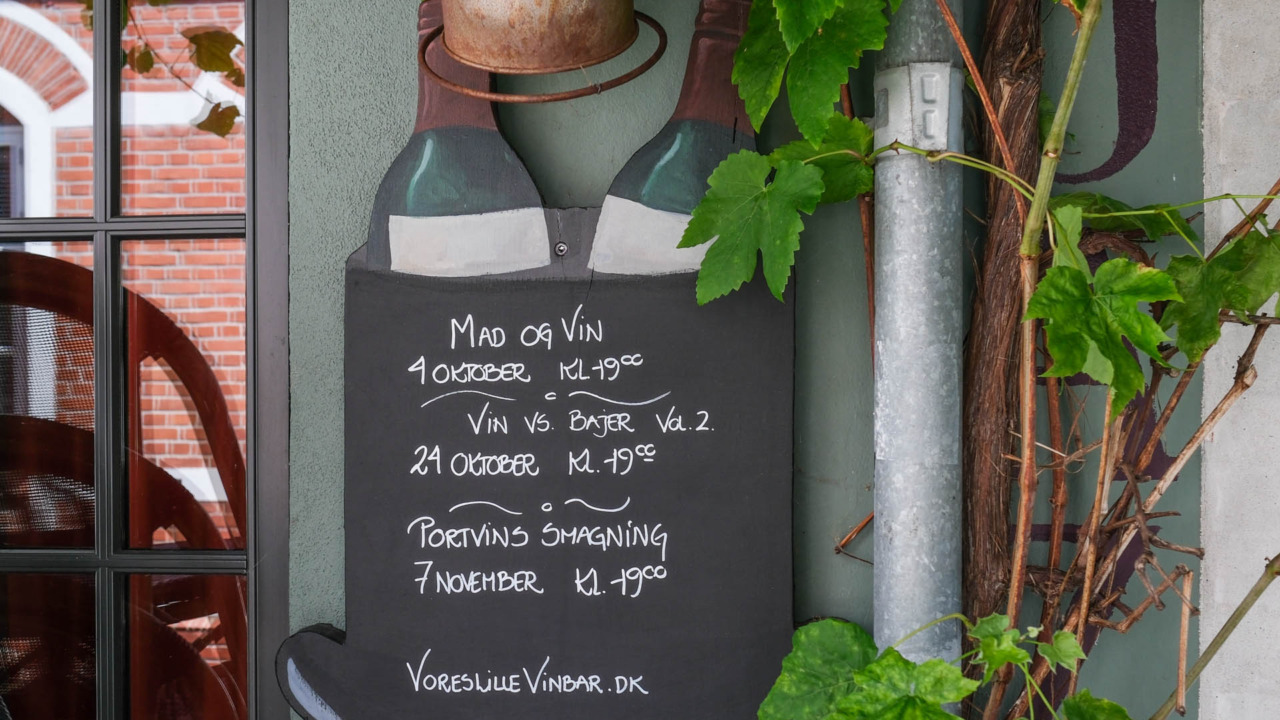 MAD OG ViN
4 OKTOBER KL-19⁰⁰
ViN VS. BAJER Vol. 2.
24 OKTOBER KL.-19⁰⁰
PORTViNS SMAGNiNG
7 NOVEMBER KL.-19⁰⁰
VORESLilleViNBAR.DK